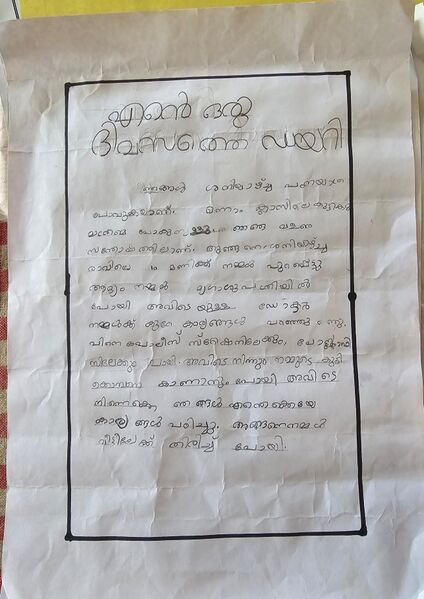 എന്റെ ഒരു
ദിവസത്തെ ഡയറി
ഞങ്ങൾ ശനിയാഴ്ച്ച പഠനയാത്ര
പോവുകയാണ്. ഒന്നാം ക്ലാസിലെ കുട്ടികൾ
മാത്രമേ പോകുന്നുള്ളു ഞങ്ങൾ
സന്തോഷത്തിലാണ്. അങ്ങനെ ശനിയാഴ്ച്ച
രാവിലെ 10 മണിക്ക് നമ്മൾ പുറപ്പെട്ടു
ആദ്യം നമ്മൾ മൃഗാശുപത്രിയിൽ
പോയി അവിടെയുള്ള ഡോക്ടർ
നമ്മൾക്ക് കുറേ കാര്യങ്ങൾ പറഞ്ഞു തന്നു.
പിന്നെ പോലീസ് സ്റ്റേഷനിലേക്കും,
പോയി. അവിടെ നിന്നും നമ്മുടെ
കാണാനും പോയി അവിടെ
നിന്നൊക്കെ ഞങ്ങൾ എന്തൊക്കെയോ
കാര്യങ്ങൾ പഠിച്ചു. അങ്ങനെ നമ്മൾ
വീട്ടിലേക്ക് തിരിച്ച് പോയി.